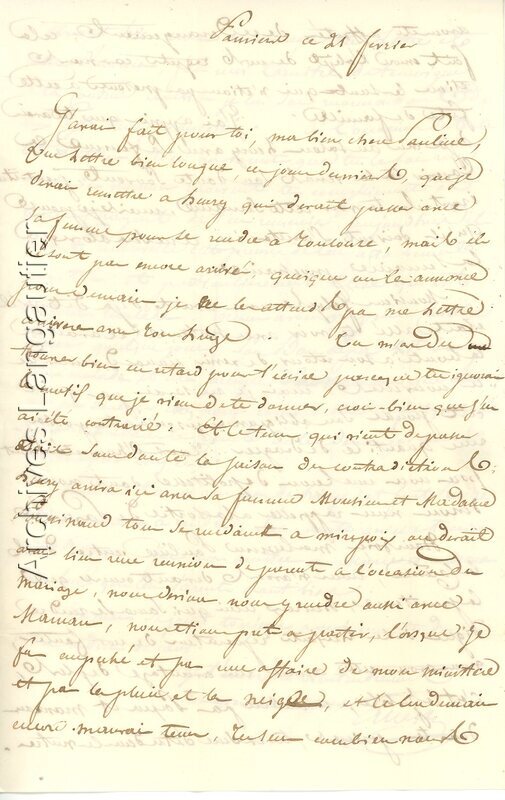 Pamiers ce 21 fevrier
J'avai fait pour toi, ma bien chere Pauline,
une lettre bien longue, ces jours derniers que je
devai remettre a henry qui devait passer avec
sa femme pour se rendre a Toulouse, mais ils
sont pas encore arrivé, quoique on les annonce
pour demain, je ne les attends pas ma lettre
arrivera avec ton linge. Tu m'as du
trouver bien en retard pour t'ecrire puisque tu ignorai
motif que je viens de te donner, crois-bien que j'en
ai été contrarié. Et le tems qui vient de passer
a été sans doute la saison des contradictions
henry arriva ici avec sa femme Monsieur et Madame
tous se rendant a mirepoix ou devait
avoir bien une reunion de parents a l'occasion du
mariage, nous devions nous y rendre aussi avec
Maman, nous etions prets a partir, lorsque je
fus empeché et par une affaire de mon ministere
et par la pluie et la neige, et le lendemain
encore mauvai tems, tu sens combien nous
Archives-Largaiolier